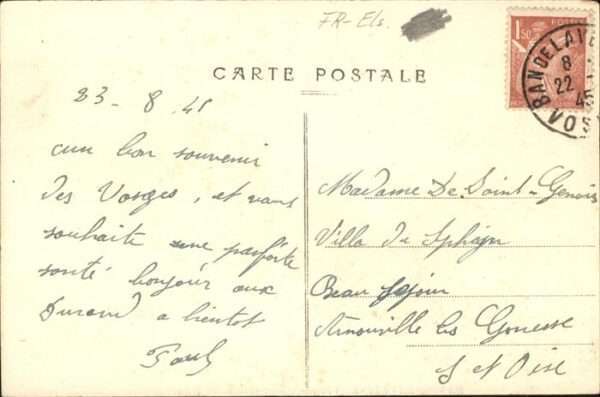 FR-Els.
CARTE POSTALE
POSTES
1F50
BAN DE LAVE
8
22
45
VOS
23 - 8. 45
un bon souvenir
des Vosges, et vous
souhaite une parfaite
santé bonjour aux
Durand a bientot
Paul
Madame De Saint-Genois
Villa du
Beau séjour
Arnouville les Gonesse
S et Oise